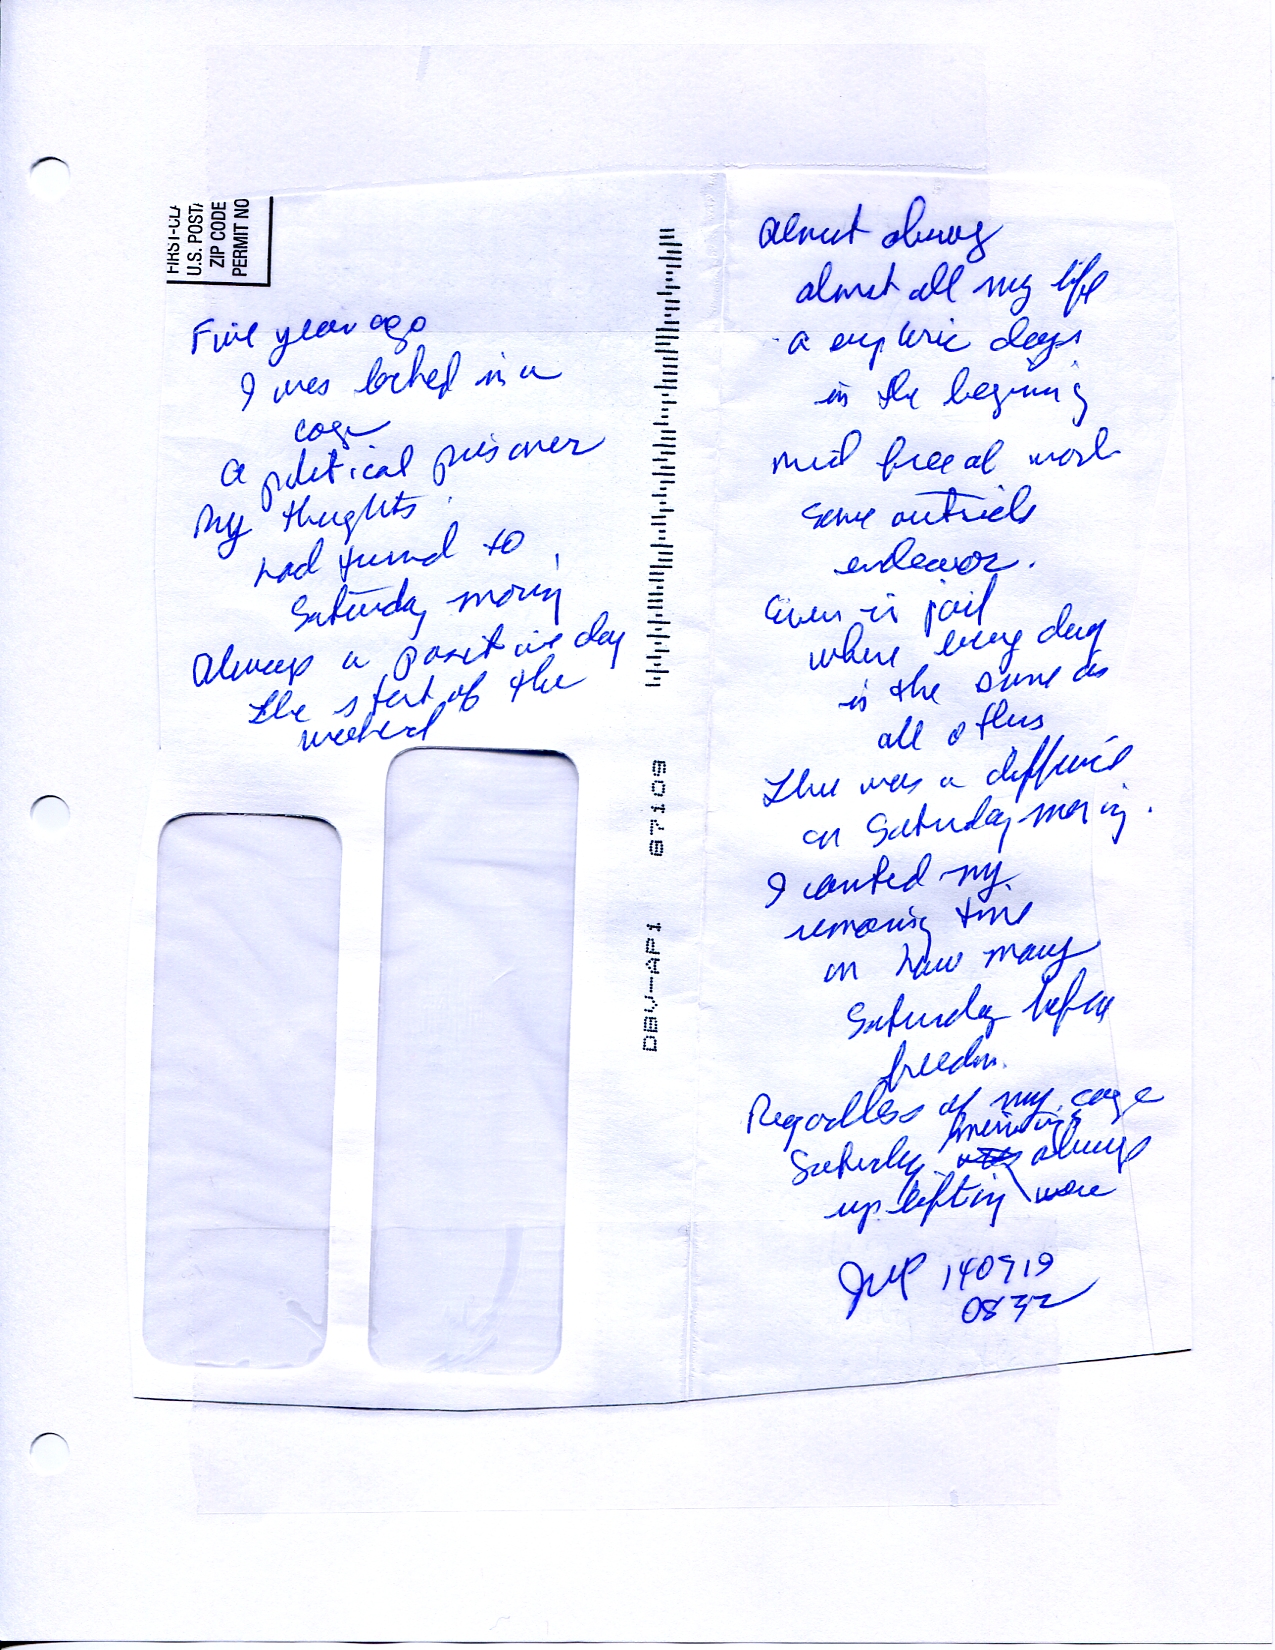 FIRST-CLA
U.S. POSTA
ZIP CODE
PERMIT NO
Five year ago
I was locked in a
cage
a political prisoner
My thoughts
had turned to
Saturday morning
Always a positive day
the start of the
weekend
DBV-AP1 87109
almost always
almost all my life
a euphoric days
in the beginning
mid free at work
some outside
endeavor.
Even in jail
where every day
is the same as
all others
There was a difference
on Saturday morning.
I counted my
remaining time
in how many
Saturday before
freedom.
Regardless of my cage
Saturday mornings always
up lifting were
JMP 140919
0832